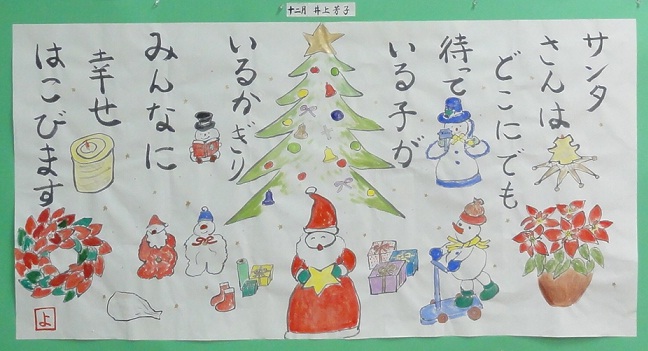 十二月 井上芳子
サンタ
さんは
どこにでも
待って
いる子が
いるかぎり
みんなに
幸せ
はこびます
よ